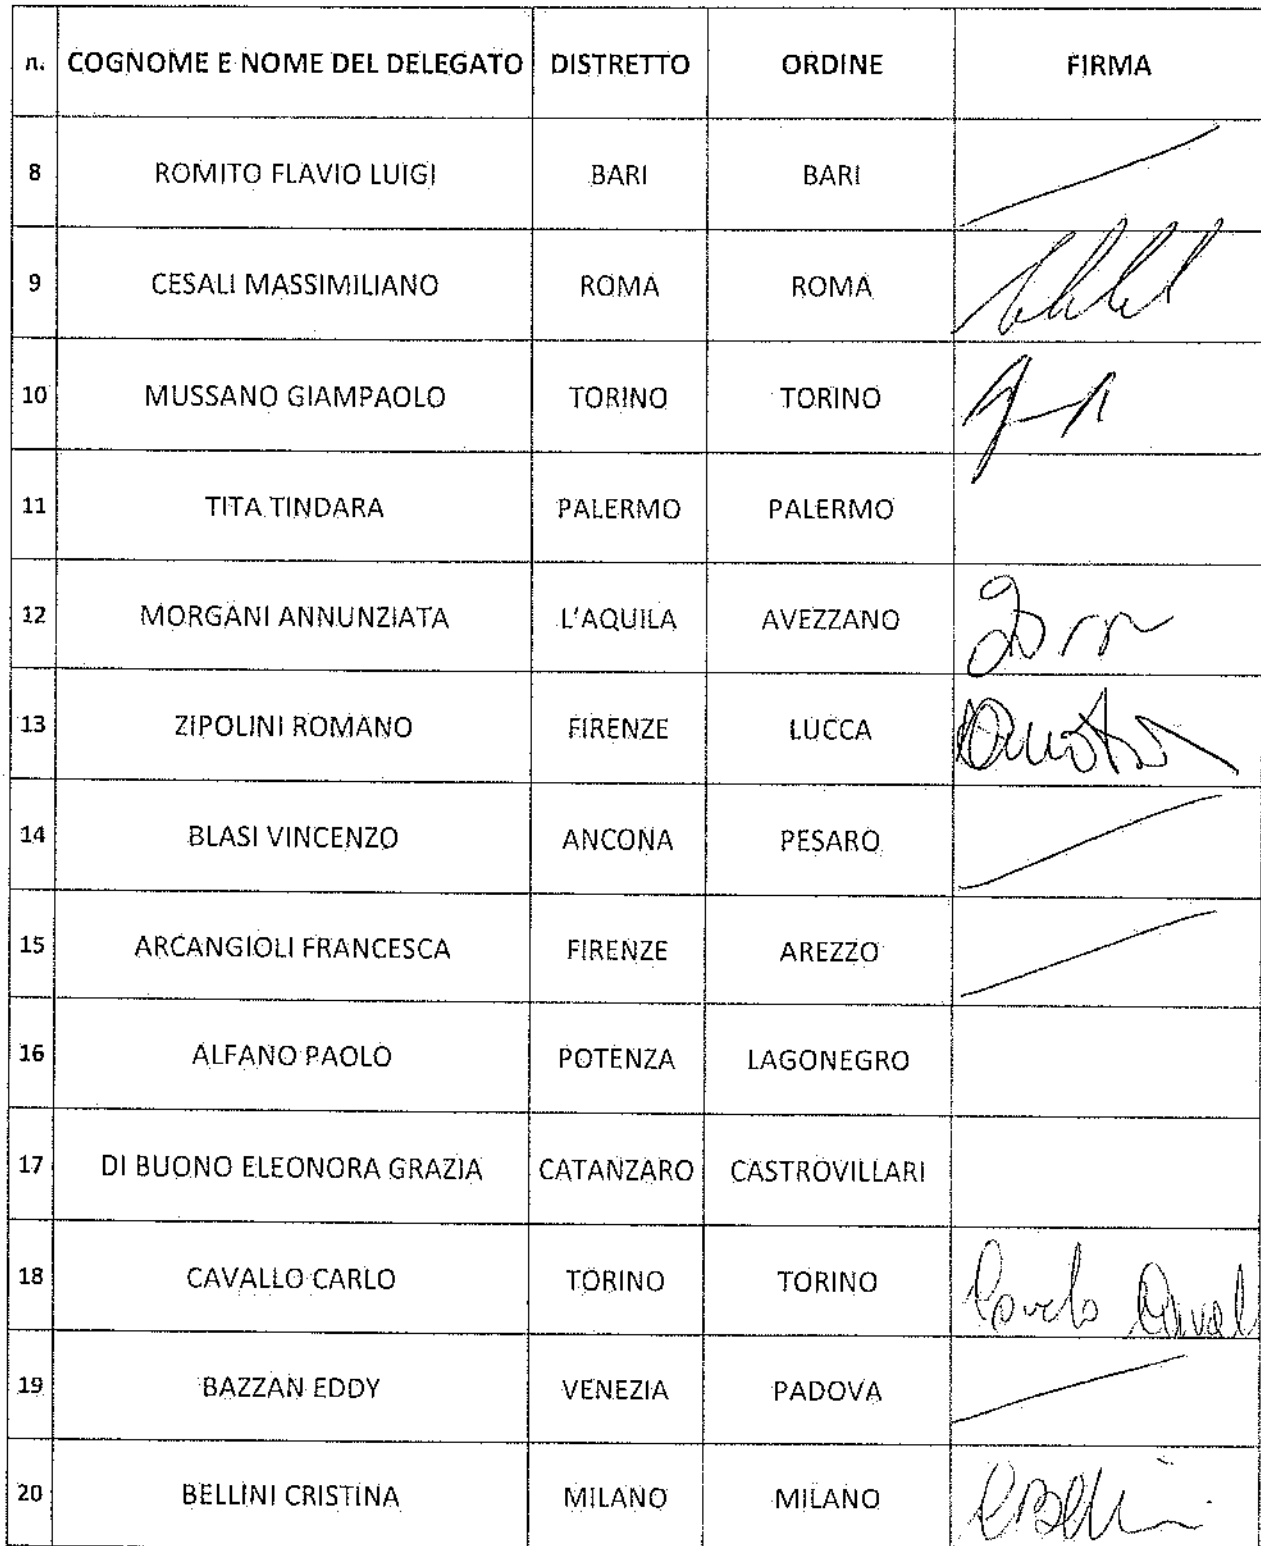 n. COGNOME E NOME DEL DELEGATO DISTRETTO ORDINE FIRMA
8 ROMITO FLAVIO LUIGI BARI BARI
9 CESALI MASSIMILIANO ROMA ROMA
10 MUSSANO GIAMPAOLO TORINO TORINO
11 TITA TINDARA PALERMO PALERMO
12 MORGANI ANNUNZIATA L'AQUILA AVEZZANO
13 ZIPOLINI ROMANO FIRENZE LUCCA
14 BLASI VINCENZO ANCONA PESARO
15 ARCANGIOLI FRANCESCA FIRENZE AREZZO
16 ALFANO PAOLO POTENZA LAGONEGRO
17 DI BUONO ELEONORA GRAZIA CATANZARO CASTROVILLARI
18 CAVALLO CARLO TORINO TORINO
19 BAZZAN EDDY VENEZIA PADOVA
20 BELLINI CRISTINA MILANO MILANO